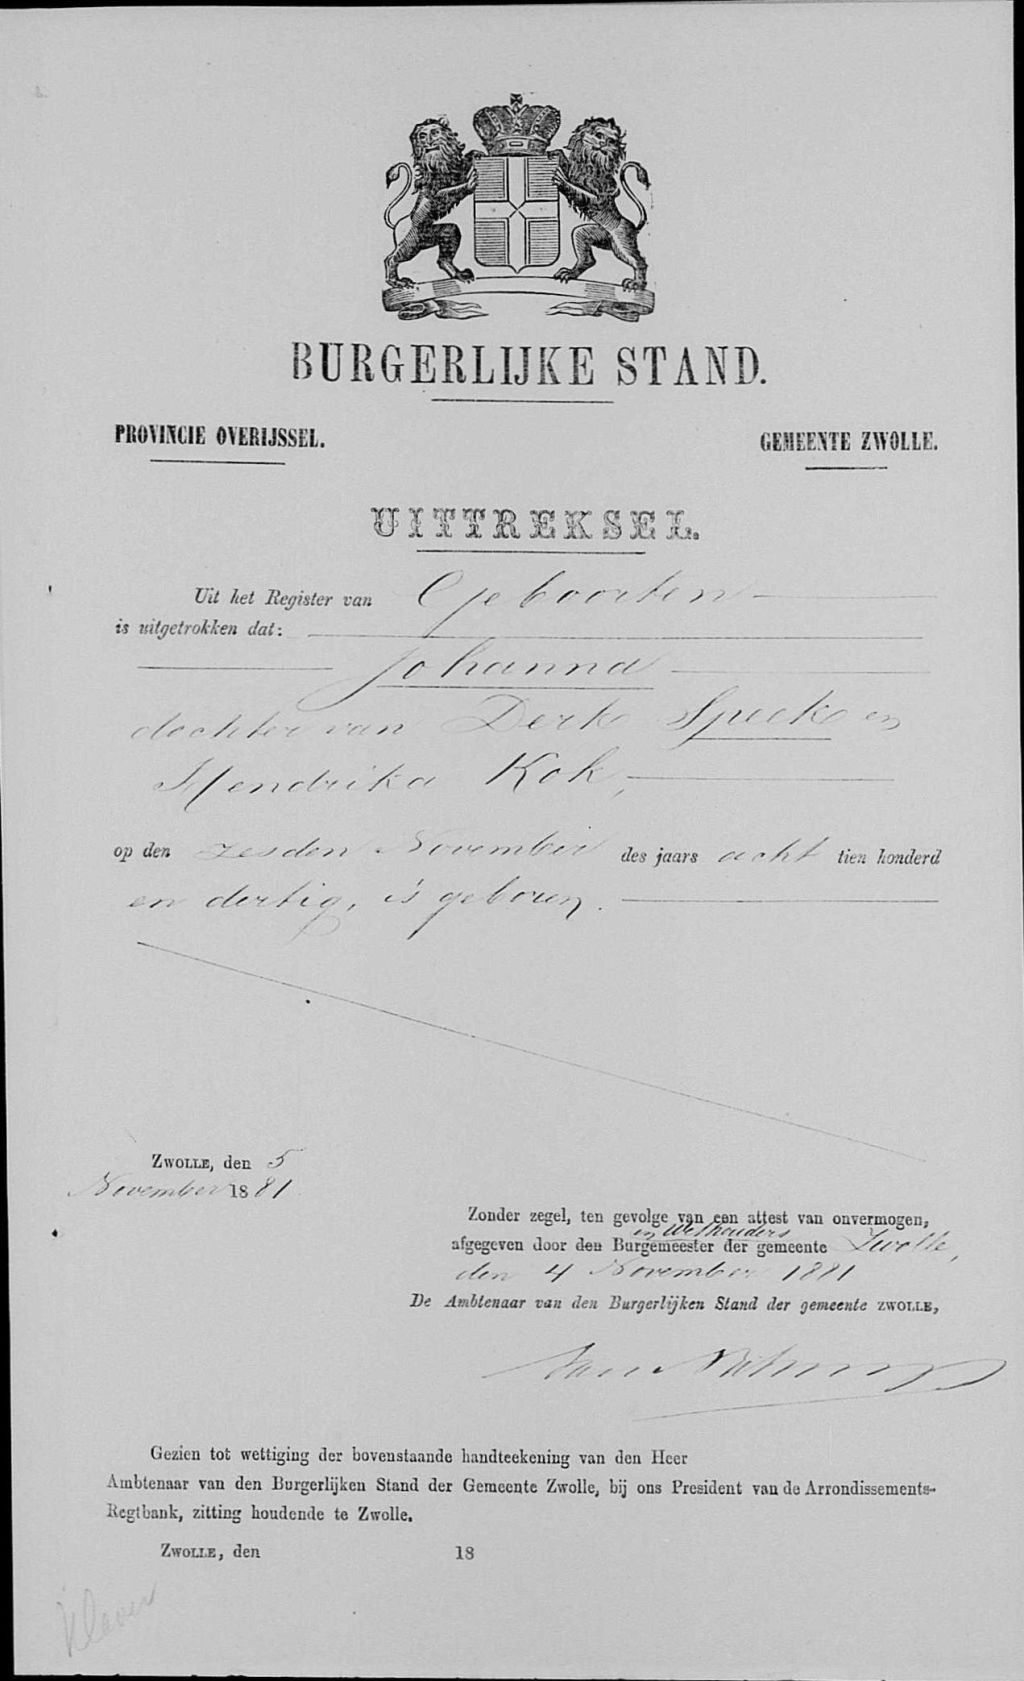 BURGERLIJKE STAND.
PROVINCIE OVERIJSSEL. GEMEENTE ZWOLLE.
UITTREKSEL.
Uit het Register van Geboorten
is uitgetrokken dat:
Johanna
dochter van Derk Speek en
Hendrika Kok,
op den zesden November des jaars acht tien honderd
en dertig, is geboren.
ZWOLLE, den 5
November 1881
Zonder zegel, ten gevolge van een attest van onvermogen,
en Wethouders
afgegeven door den Burgemeester der gemeente Zwolle,
den 4 November 1881
De Ambtenaar van den Burgerlijken Stand der gemeente ZWOLLE,
Gezien tot wettiging der bovenstaande handteekening van den Heer
Ambtenaar van den Burgerlijken Stand der Gemeente Zwolle, bij ons President van de Arrondissements-
Regtbank, zitting houdende te Zwolle.
ZWOLLE, den 18
Klaver